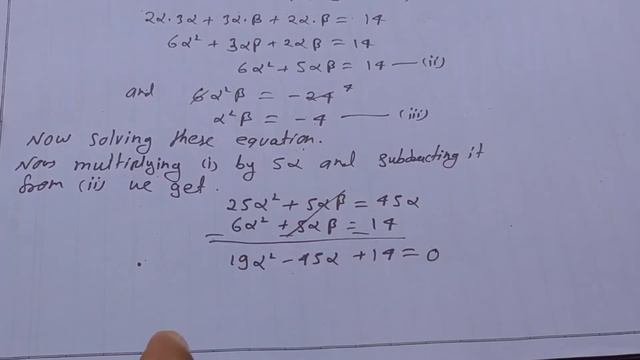 2α.3α + 3α.β + 2α.β = 14
6α² + 3αβ + 2αβ = 14
6α² + 5αβ = 14 — (ii)
and 6α²β = -24 4
α²β = -4 — (iii)
Now solving these equation.
Now multiplying (i) by 5α and subducting it
from (ii) we get.
25α² + 5αβ = 45α
6α² + 5αβ = 14
19α² - 45α + 14 = 0